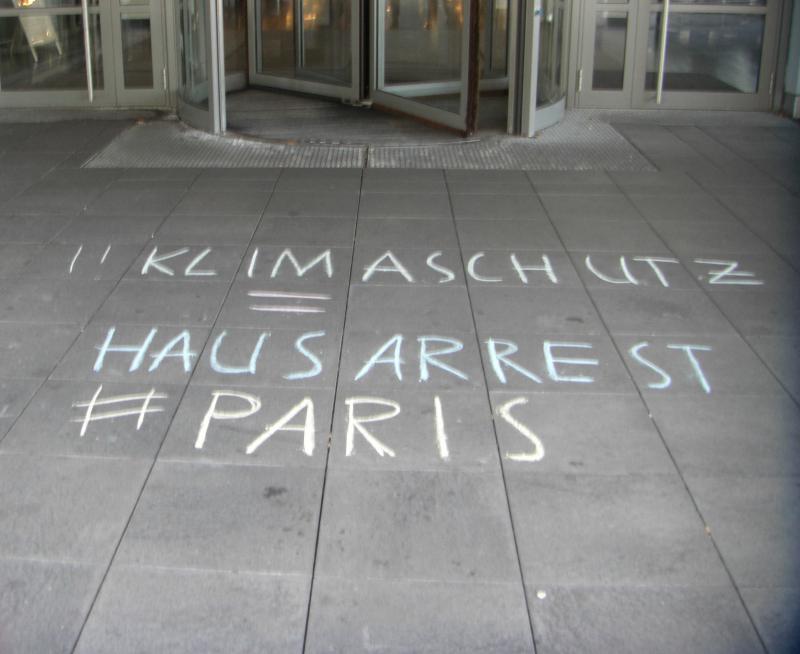 !! KLIMASCHUTZ
=
HAUSARREST
#PARIS